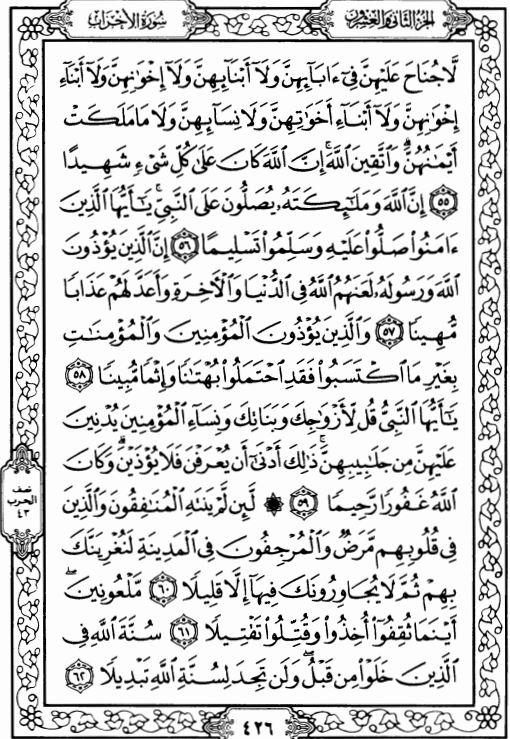 سُورَةُ الأَحْزَابِ
الجُزْءُ الثَّانِي وَالعِشْرُونَ
لَّا جُنَاحَ عَلَيْهِنَّ فِىٓ ءَابَآئِهِنَّ وَلَآ أَبْنَآئِهِنَّ وَلَآ إِخْوَٰنِهِنَّ وَلَآ أَبْنَآءِ
إِخْوَٰنِهِنَّ وَلَآ أَبْنَآءِ أَخَوَٰتِهِنَّ وَلَا نِسَآئِهِنَّ وَلَا مَا مَلَكَتْ
أَيْمَٰنُهُنَّ ۗ وَٱتَّقِينَ ٱللَّهَ ۚ إِنَّ ٱللَّهَ كَانَ عَلَىٰ كُلِّ شَىْءٍ شَهِيدًا
٥٥ إِنَّ ٱللَّهَ وَمَلَٰٓئِكَتَهُۥ يُصَلُّونَ عَلَى ٱلنَّبِىِّ ۚ يَٰٓأَيُّهَا ٱلَّذِينَ
ءَامَنُوا۟ صَلُّوا۟ عَلَيْهِ وَسَلِّمُوا۟ تَسْلِيمًا ٥٦ إِنَّ ٱلَّذِينَ يُؤْذُونَ
ٱللَّهَ وَرَسُولَهُۥ لَعَنَهُمُ ٱللَّهُ فِى ٱلدُّنْيَا وَٱلْءَاخِرَةِ وَأَعَدَّ لَهُمْ عَذَابًا
مُّهِينًا ٥٧ وَٱلَّذِينَ يُؤْذُونَ ٱلْمُؤْمِنِينَ وَٱلْمُؤْمِنَٰتِ
بِغَيْرِ مَا ٱكْتَسَبُوا۟ فَقَدِ ٱحْتَمَلُوا۟ بُهْتَٰنًا وَإِثْمًا مُّبِينًا ٥٨
يَٰٓأَيُّهَا ٱلنَّبِىُّ قُل لِّأَزْوَٰجِكَ وَبَنَاتِكَ وَنِسَآءِ ٱلْمُؤْمِنِينَ يُدْنِينَ
عَلَيْهِنَّ مِن جَلَٰبِيبِهِنَّ ۚ ذَٰلِكَ أَدْنَىٰٓ أَن يُعْرَفْنَ فَلَا يُؤْذَيْنَ ۗ وَكَانَ
ٱللَّهُ غَفُورًا رَّحِيمًا ٥٩ ۞ لَّئِن لَّمْ يَنتَهِ ٱلْمُنَٰفِقُونَ وَٱلَّذِينَ
فِى قُلُوبِهِم مَّرَضٌ وَٱلْمُرْجِفُونَ فِى ٱلْمَدِينَةِ لَنُغْرِيَنَّكَ
بِهِمْ ثُمَّ لَا يُجَاوِرُونَكَ فِيهَآ إِلَّا قَلِيلًا ٦٠ مَّلْعُونِينَ ۖ
أَيْنَمَا ثُقِفُوٓا۟ أُخِذُوا۟ وَقُتِّلُوا۟ تَقْتِيلًا ٦١ سُنَّةَ ٱللَّهِ فِى
ٱلَّذِينَ خَلَوْا۟ مِن قَبْلُ ۖ وَلَن تَجِدَ لِسُنَّةِ ٱللَّهِ تَبْدِيلًا ٦٢
نصف
الحزب
٤٣
٤٢٦